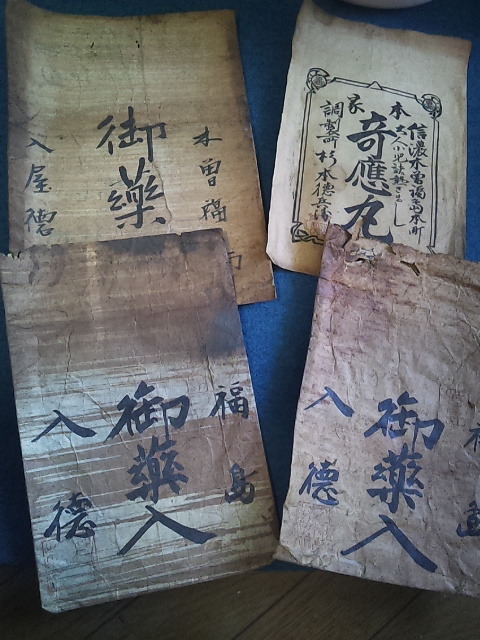 木曽福
御藥
入屋德
本家
信濃木曽福島本町
奇應丸
調製所 杉本德兵衛
福島
御藥入
入德
御藥入
入德